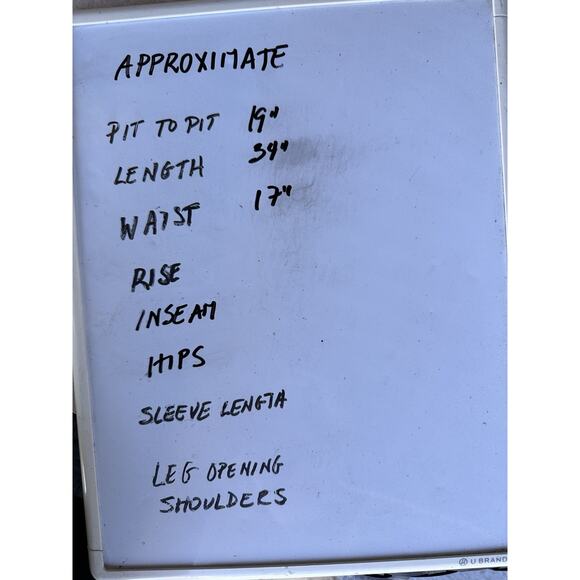 APPROXIMATE
PIT TO PIT 19"
LENGTH 34"
WAIST 17"
RISE
INSEAM
HIPS
SLEEVE LENGTH
LEG OPENING
SHOULDERS
U BRAND